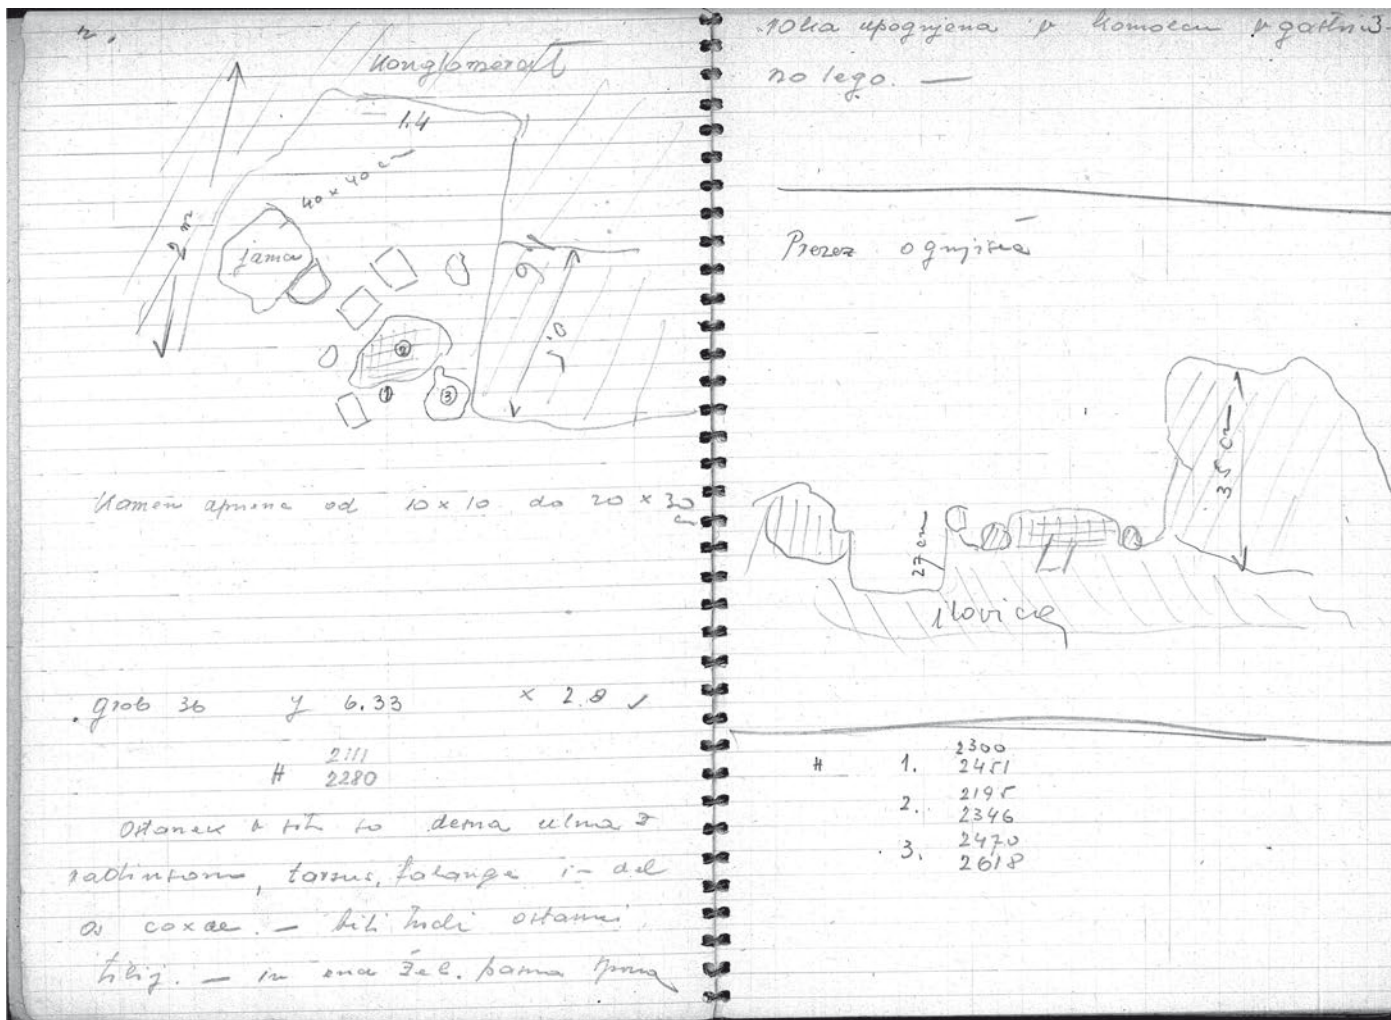 Konglomerat
1.4
40 x 40 cm
2 m
jama
2
1
3
Kamen apnena od 10 x 10 do 20 x 30
cm
grob 36 y 6.33 x 2.8 ✓
2111
# 2280
Ostanek v
radiusom, tarsus, falange in del
os coxae. — bili tudi ostanki
tibij. — in ena žel.
roka upognjena v komolcu v
no lego. —
Prerez ognjišča
35 cm
27 cm
ilovica
2300
# 1. 2451
2195
2. 2346
2470
3. 2618